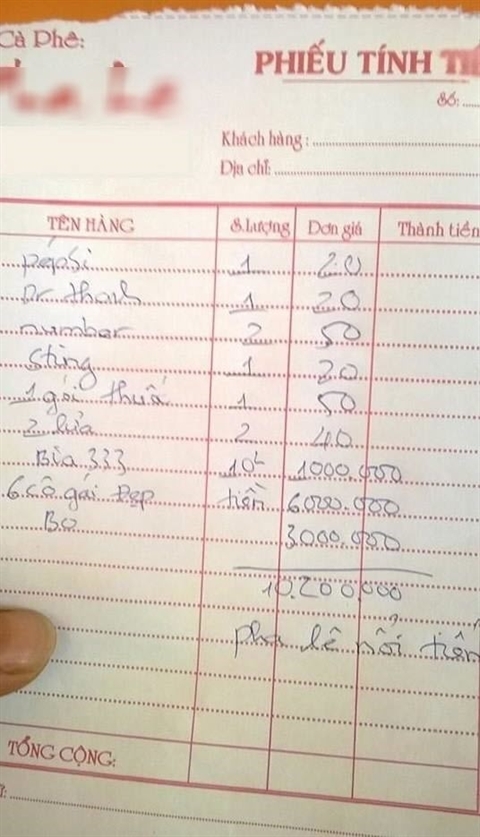 Cà Phê:
PHIẾU TÍNH
Số:
Khách hàng :
Địa chỉ:
TÊN HÀNG S.Lượng Đơn giá Thành tiền
pepsi 1 20
Dr thanh 1 20
number 2 50
Sting 1 20
1 gói thuố 1 50
2 lửa 2 40
Bia 333 10L 1000.000
6 cô gái Đẹp tiền 6.000.000
Bo 3000.000
10.200.000
pha lê nổi tiến
TỔNG CỘNG: